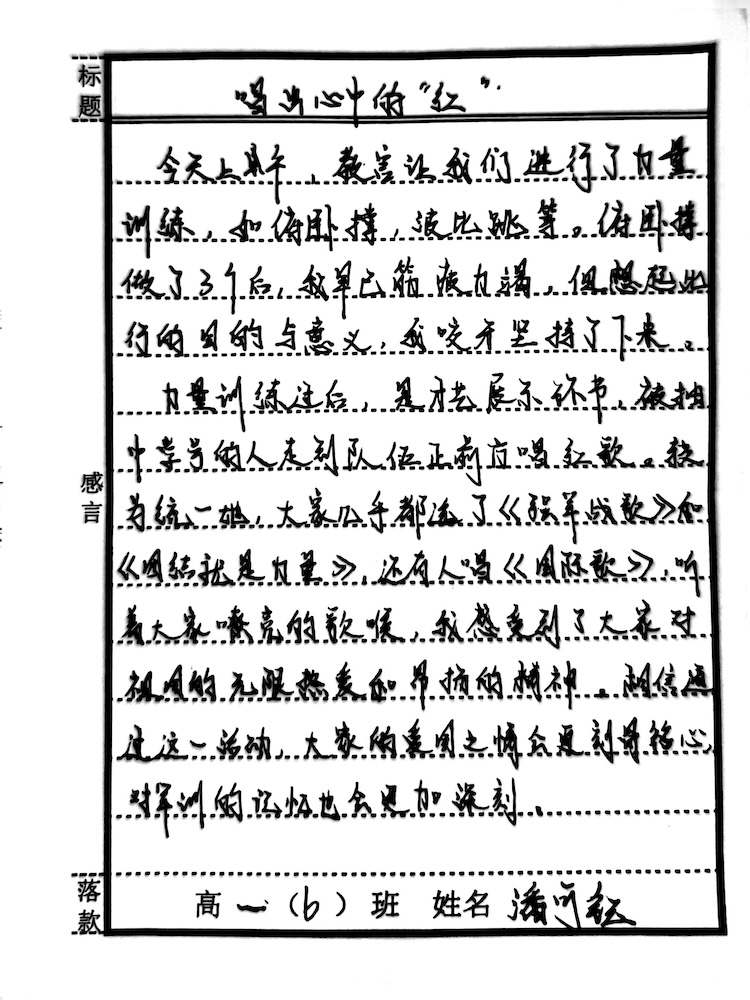 标题
唱出心中的“红”
今天上午，教官让我们进行了力量
训练，如俯卧撑，波比跳等。俯卧撑
做了3个后，我早已筋疲力竭，但想起此
行的目的与意义，我咬牙坚持了下来。
力量训练过后，是才艺展示环节，被抽
中学号的人走到队伍正前方唱红歌。较
为统一地，大家几乎都选了《强军战歌》和
《团结就是力量》，还有人唱《国际歌》，听
着大家嘹亮的歌喉，我感受到了大家对
祖国的无限热爱和昂扬的精神。相信通
过这一活动，大家的爱国之情会更刻骨铭心，
对军训的记忆也会更加深刻。
感言
落款
高一（6）班 姓名 潘可